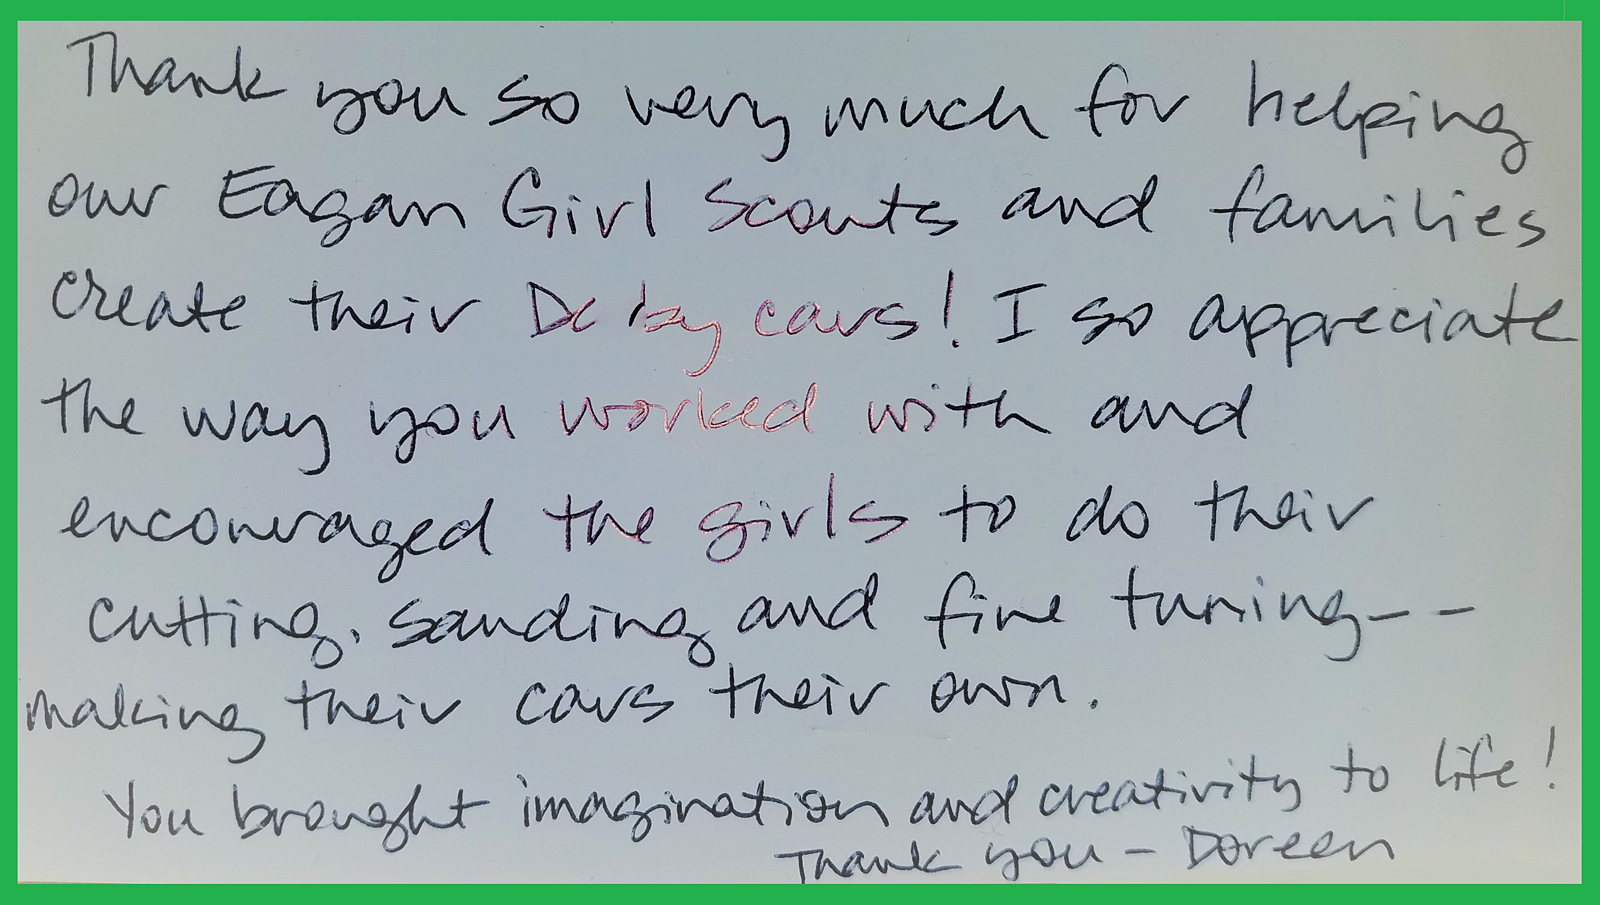 Thank you so very much for helping
our Eagan Girl Scouts and families
create their Derby cars! I so appreciate
the way you worked with and
encouraged the girls to do their
cutting, sanding and fine tuning--
making their cars their own.
You brought imagination and creativity to life!
Thank you - Doreen